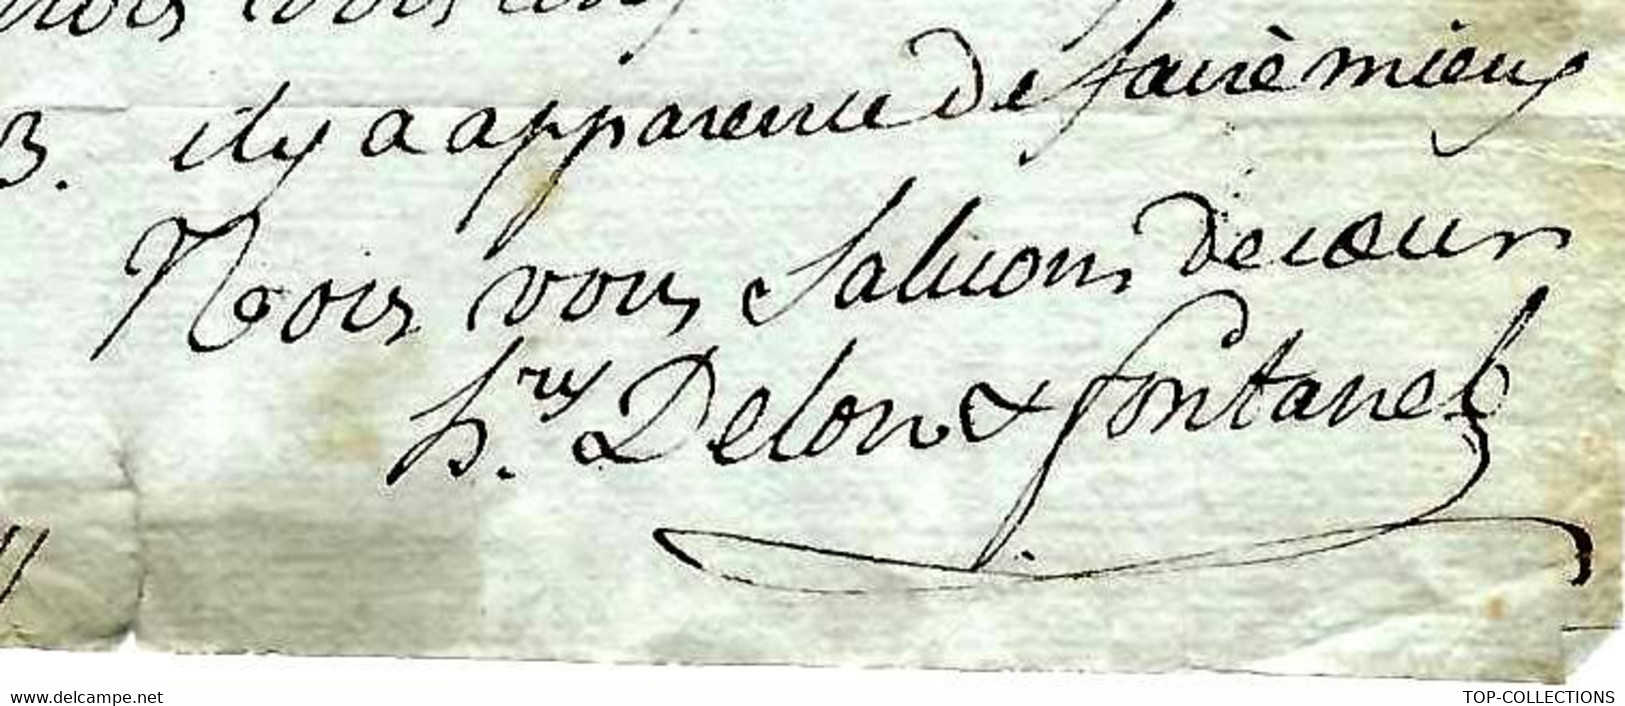 3. il y a apparence de faire mieux
Nous vous Saluons de cœur
h.ry Delon & fontanel
www.delcampe.net
TOP-COLLECTIONS